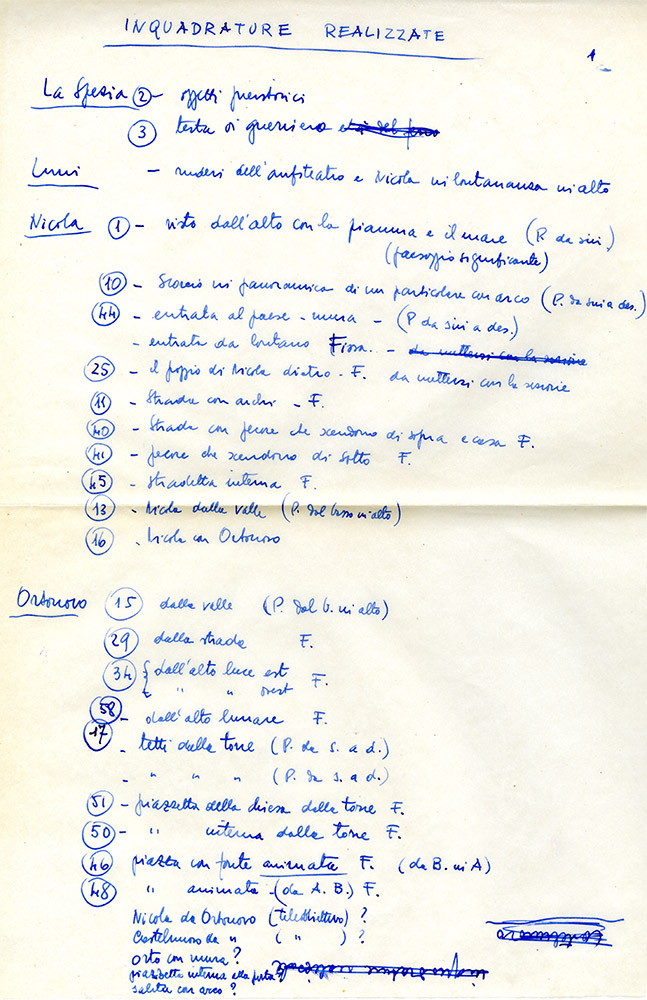 INQUADRATURE REALIZZATE
1
La Spezia 2 - oggetti preistorici
3 testa di guerriero
Luni - ruderi dell'anfiteatro e Nicola in lontananza in alto
Nicola 1 - visto dall'alto con la pianura e il mare (P. da sin.
(paesaggio significante)
10 - Scorcio in panoramica di un particolare con arco (P. da sin a des.)
44 - entrata al paese - mura - (P da sin a des.)
- entrata da lontano Fissa. - da mettersi con la stazione
25 - il poggio di Nicola dietro - F. da mettersi con la
11 - Strada con archi - F.
40 - Strada con pecore che scendono di sopra e casa F.
41 - pecore che scendono di sotto F.
45 - stradetta interna F.
13 - Nicola dalla valle (P. dal basso in alto)
16 - Nicola con Ortonovo
Ortonovo 15 dalla valle (P. dal b. in alto)
29 dalla strada F.
34 { dall'alto luce est F.
" " ovest
58 - dall'alto lunare F.
17 - tetti dalla torre (P. da s. a d.)
- " " " (P. da s. a d.)
51 - piazzetta della chiesa dalla torre F.
50 - " interna dalla torre F.
46 piazza con fonte animata F. (da B. in A)
48 " animata - (da A. B.) F.
Nicola da Ortonovo (teleobiettivo) ?
Castelnuovo da " ( " ) ?
orto con mura ?
piazzetta interna alla porta ?
salita con arco ?